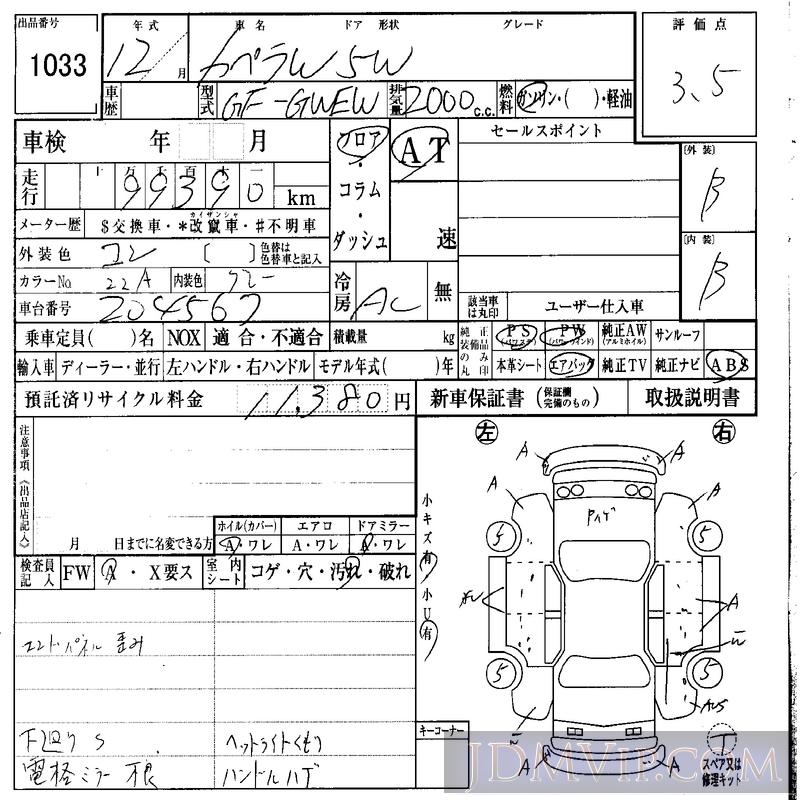 出品番号 年式 車名 ドア 形状 グレード 評価点
1033 12/月 カペラW 5W 3.5
車歴 型式 GF-GWEW 排気量 2000 c.c. 燃料 ガソリン・( )・軽油
車検 年 月 フロア・コラム・ダッシュ AT 速 セールスポイント
[外装] B
走行 十万千百十一 99390 km
メーター歴 $交換車・*改竄車・#不明車
カイザンシャ
外装色 コン [ ] 色替は色替車と記入
[内装] B
カラーNo 22A 内装色 グレー 冷房 AC 無
車台番号 204567 該当車は丸印 ユーザー仕入車
乗車定員( )名 NOX 適合・不適合 積載量 kg 純正装備品のみ丸印 PS(パワステ) PW(パワーウインド) 純正AW(アルミホイル) サンルーフ
輸入車 ディーラー・並行 左ハンドル・右ハンドル モデル年式( )年 本革シート エアバッグ 純正TV 純正ナビ ABS
預託済リサイクル料金 11,380 円 新車保証書(保証欄完備のもの) 取扱説明書
注意事項《出品店記入》
左 右
A A
A A
Pイゲ
小キズ有・小U有
5 5
月 日までに名変できる方
ホイル(カバー) エアロ ドアミラー
A・ワレ A・ワレ A・ワレ
検査員記入 FW A・X要ス 室内シート コゲ・穴・汚れ・破れ
A
エンドパネル 歪み
5 5
下廻り S ヘットライトくもり
電格ミラー 不良 ハンドルハゲ
キーコーナー
A A
T
スペア又は修理キット
JDMVIP.COM